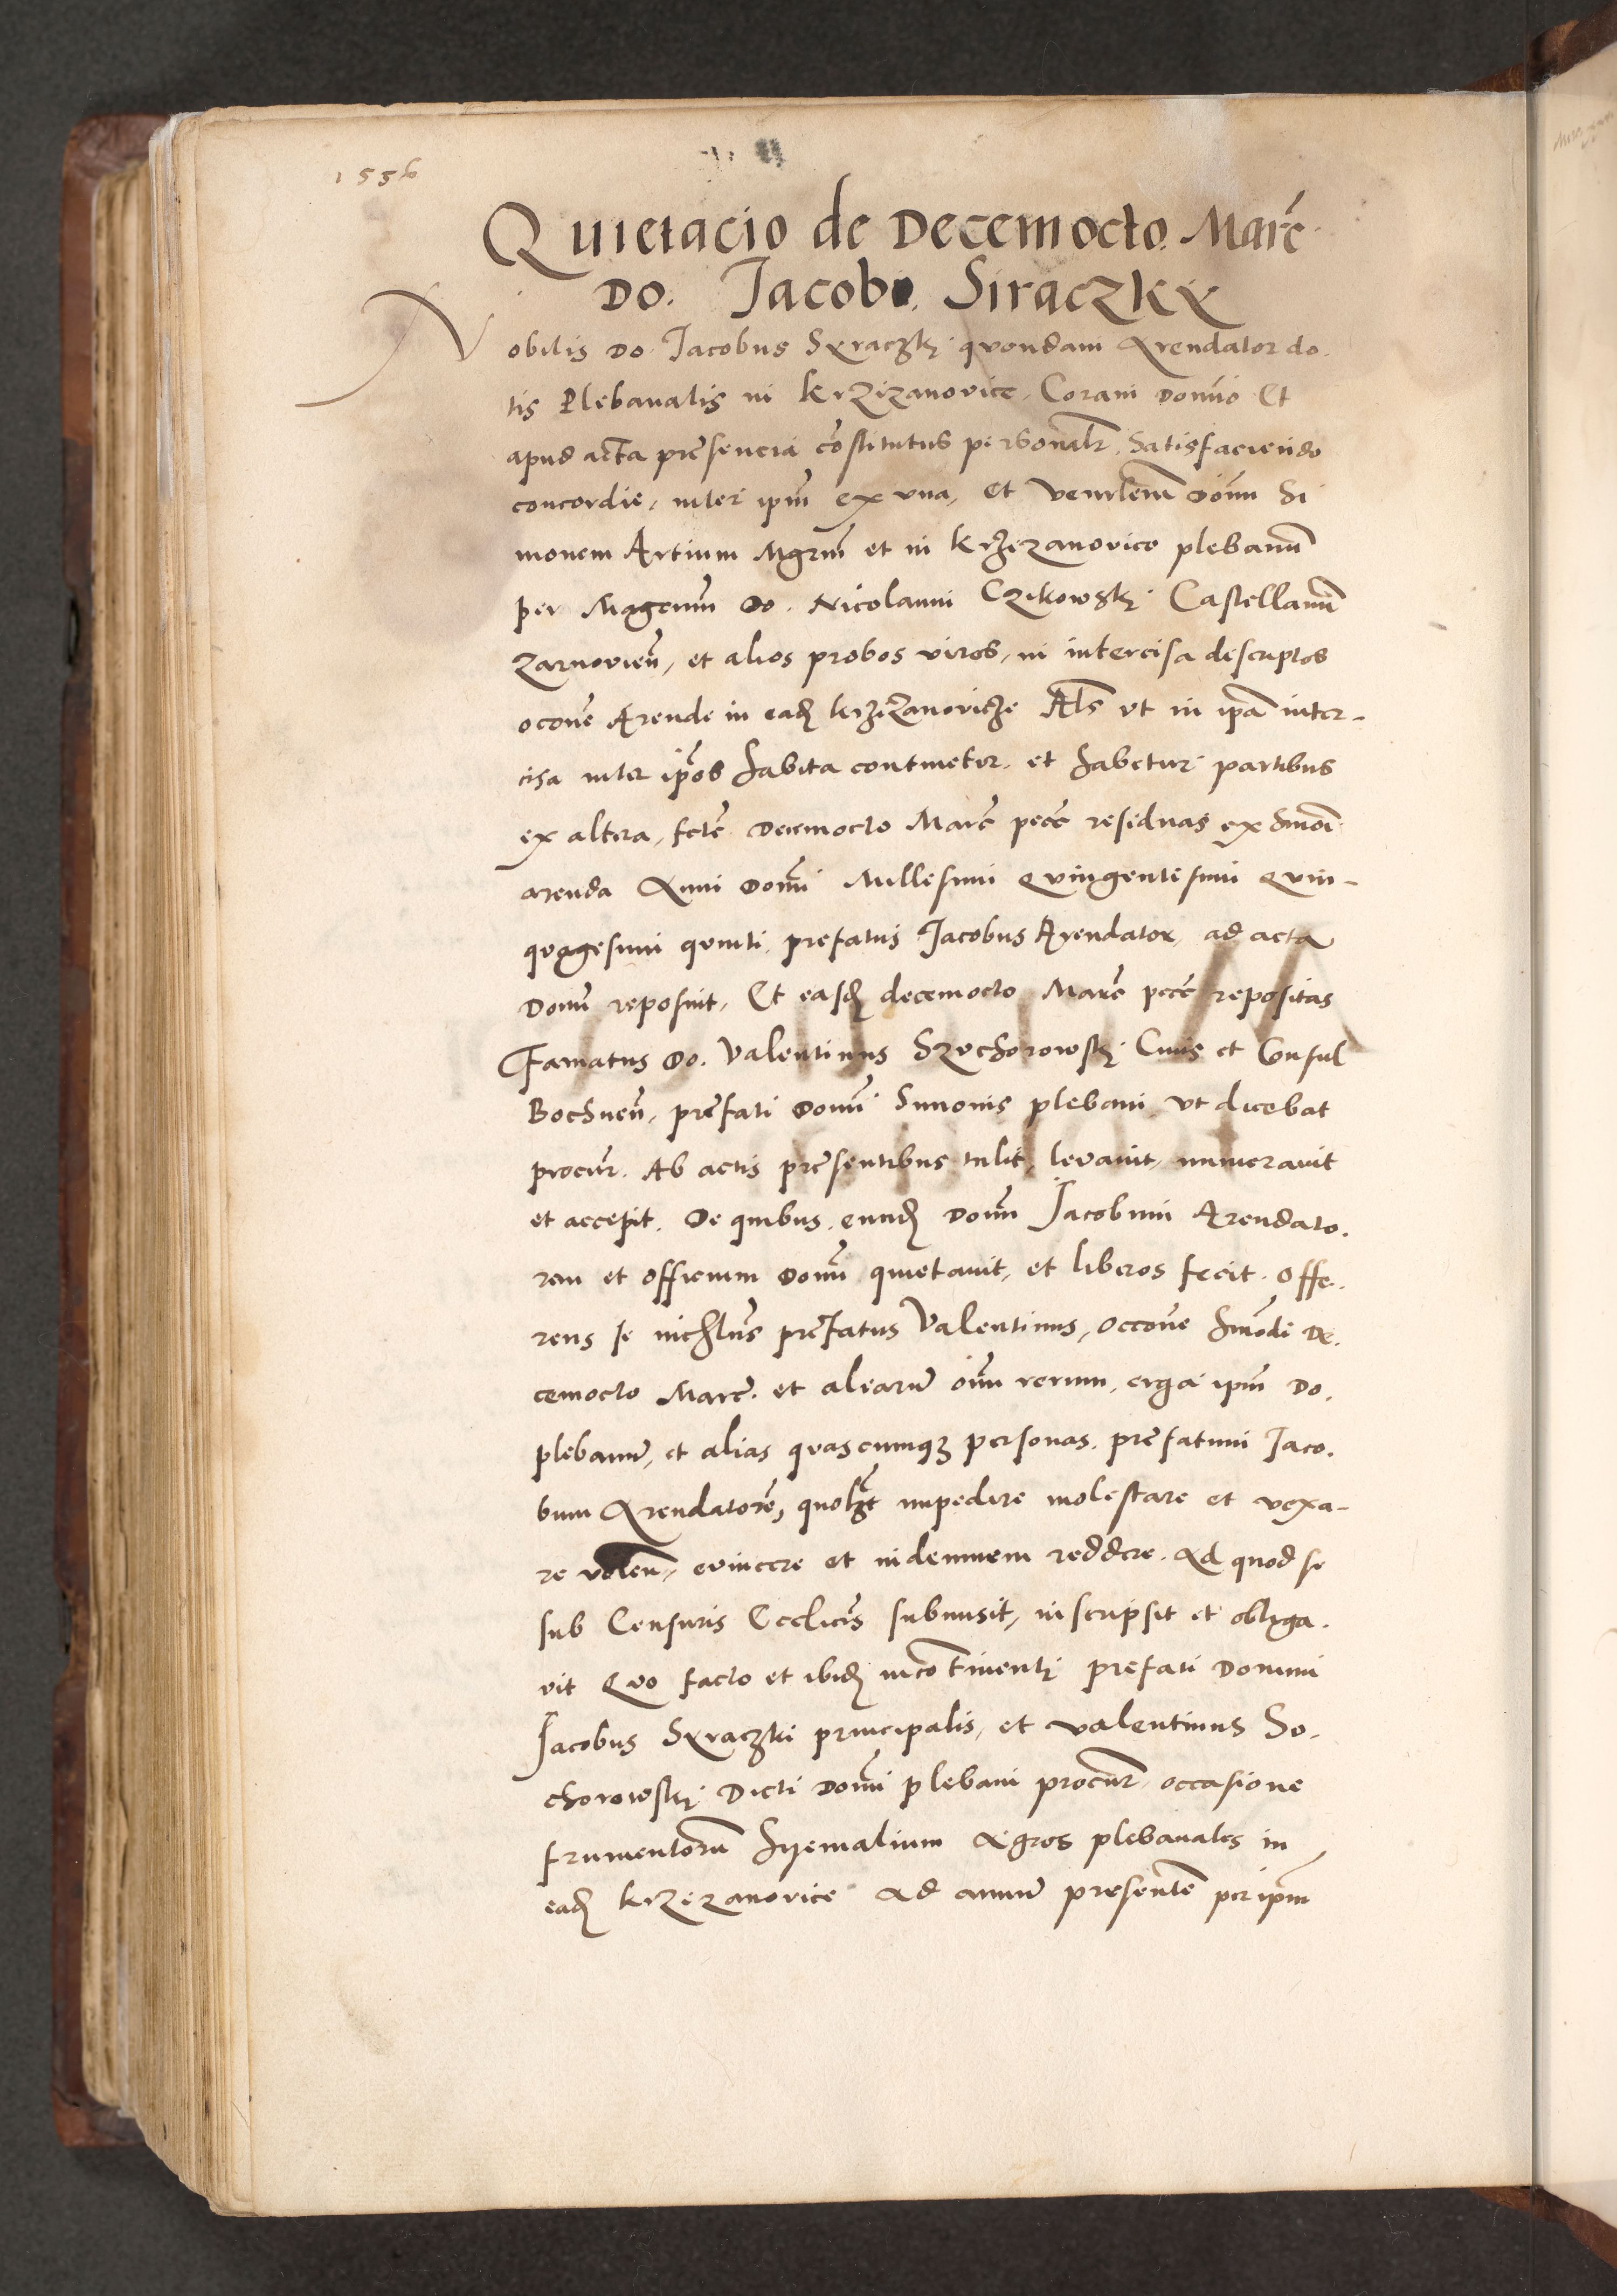 1556
Quietacio de Decemocto Marc̃
Do. Jacobo Siraczky
Nobilis Do. Jacobus Syraczkj quondam Arendator do-
tis Plebanalis in Krzizanovice, Coram Domĩo Et
apud acta presencia cõstitutus personalr̃. Satisfaciendo
concordie, inter ipm̃ ex vna, et venrlem̃ Dõnu Si
monem Artium Mgrm̃ et in krzizanovice plebanũ
per Magcum̃ Do. Nicolaum Czikowskj Castellanũ
Zarnovien̄, et alios probos viros, in intercisa descriptos
occone Arende in eadȝ krzizanovicze Als̃ vt in ip̃a inter-
cisa inter ip̃os habita continetur et habetur partibus
ex altera, Decemocto Marc̃ pecc̃ residuas ex hmõi
arenda Anni Domĩ Millesimi Quingentesimi Quin-
quagesimi quinti prefatus Jacobus Arendator, ad acta
Domũ reposuit, Et easdȝ decemocto Marc̃ pecc̃ repositas
Famatus Do. Valentinus Szvchorowskj Civis et Consul
Bochnen̄, prefati Domĩ Simonis plebani vt dicebat
procur̃. Ab actis presentibus tulit, levavit, numeravit
et accepit. De quibus eundȝ Domũ Jacobum Arendato-
rem et officium Domũ quietavit, et liberos fecit. Offe-
rens se nichlms̃ prefatus Valentinus, occone hmõdi De-
cemocto Marc̃. et aliarũ om̃iu rerum, erga ipm̃ Do.
plebanũ, et alias quascumqȝ personas. prefatum Jaco-
bum Arendatorẽ, quolȝt impedire molestare et vexa-
re volen̄, evincere et indemnem reddere. Ad quod se
sub Censuris Ecclicis̃ submisit, inscripsit et obliga-
vit Quo facto et ibidȝ incontinentj prefati Domini
Jacobus Syraczki principalis, et valentinus So-
chorowskj Dicti Domĩ plebani procur̃ occasione
frumentorũ hyemalium Agros plebanales in
eadȝ krzizanovice Ad annũ presentẽ per ipm̃